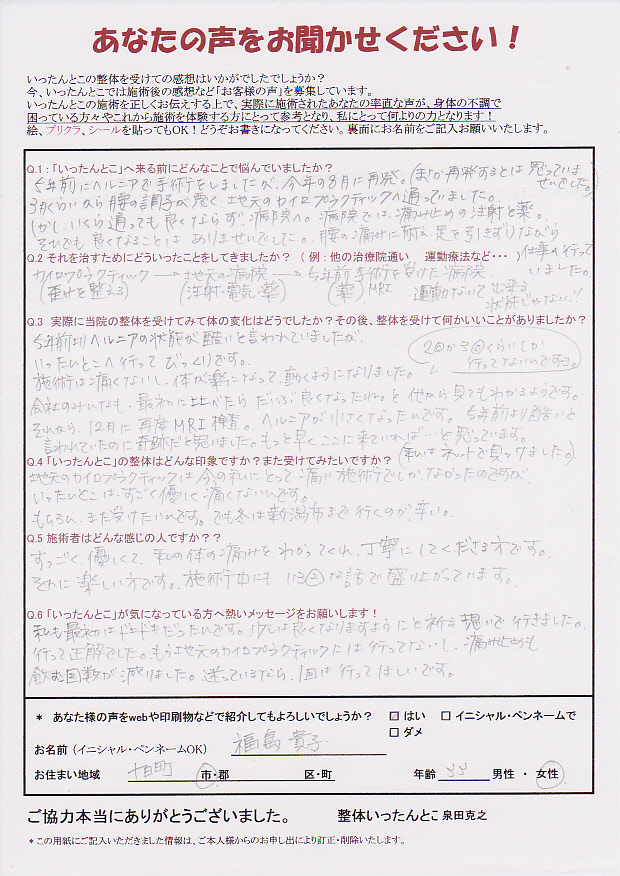 あなたの声をお聞かせください！
いったんとこの整体を受けての感想はいかがでしたでしょうか？
今、いったんとこでは施術後の感想など「お客様の声」を募集しています。
いったんとこの施術を正しくお伝えする上で、実際に施術されたあなたの率直な声が、身体の不調で
困っている方々やこれから施術を体験する方にとって参考となり、私にとって何よりの力となります！
絵、プリクラ、シールを貼ってもOK！どうぞお書きになってください。裏面にお名前をご記入お願いいたします。
Q.1：「いったんとこ」へ来る前にどんなことで悩んでいましたか？
5年前にヘルニアで手術をしましたが、今年の8月に再発。(まさか再発するとは思っていませんでした。)
3月くらいから腰の調子が悪く地元のカイロプラクティックへ通っていました。
しかし、いくら通っても良くならず病院へ。病院では、痛み止めの注射と薬。
それでも良くなることはありませいでした。腰の痛みに耐え、足を引きずりながら
仕事へ行っていました。
Q.2 それを治すためにどういったことをしてきましたか？（例：他の治療院通い 運動療法など・・・）
カイロプラクティック → 地元の病院 → 5年前手術を受けた病院
(歪みを整える) (注射・電気・薬) (薬) MRI 運動なんて出来る状態じゃない!!
Q.3 実際に当院の整体を受けてみて体の変化はどうでしたか？その後、整体を受けて何かいいことがありましたか？
5年前よりヘルニアの状態が酷いと言われていましたが、
いったんとこへ行ってびっくりです。
2回か3回くらいしか行ってないんですョ。
施術は痛くないし、体が楽になって、動くようになりました。
会社のみんなも、最初に比べたらだいぶ良くなったね。と他から見てもわかるようです。
それから、12月に再度MRI検査。ヘルニアが小さくなったんです。5年前より酷いと
言われていたのに奇跡だと思いました。もっと早くここに来ていれば…と思っています。
(私はネットで見つけました。)
Q.4 「いったんとこ」の整体はどんな印象ですか？また受けてみたいですか？
地元のカイロプラクティックは今の私にとって痛い施術でしかなかったのですが、
いったんとこは、すごく優しく痛くないんです。
もちろん、また受けたいんです。でも冬は新潟市まで行くのが、辛い。
Q.5 施術者はどんな感じの人ですか？？
すっごく優しくて、私の体の痛みをわかってくれ、丁寧にしてくださる方です。
それに楽しい方です。施術中にもいろ②な話で盛り上がっています。
Q.6 「いったんとこ」が気になっている方へ熱いメッセージをお願いします！
私も最初はドキドキだったんです。少しは良くなりますようにと祈る想いで行きました。
行って正解でした。もう地元のカイロプラクティックには行ってないし、痛み止めも
飲む回数が減りました。迷っているなら、1回は行ってほしいです。
＊ あなた様の声をwebや印刷物などで紹介してもよろしいでしょうか？ ☑ はい □ イニシャル・ペンネームで
□ ダメ
お名前（イニシャル・ペンネームOK） 福島 貴子
お住まい地域 十日町 市・郡 区・町 年齢 33 男性 ・ 女性
ご協力本当にありがとうございました。 整体いったんとこ 泉田克之
＊この用紙にご記入いただきました情報は、ご本人様からのお申し出により訂正・削除いたします。